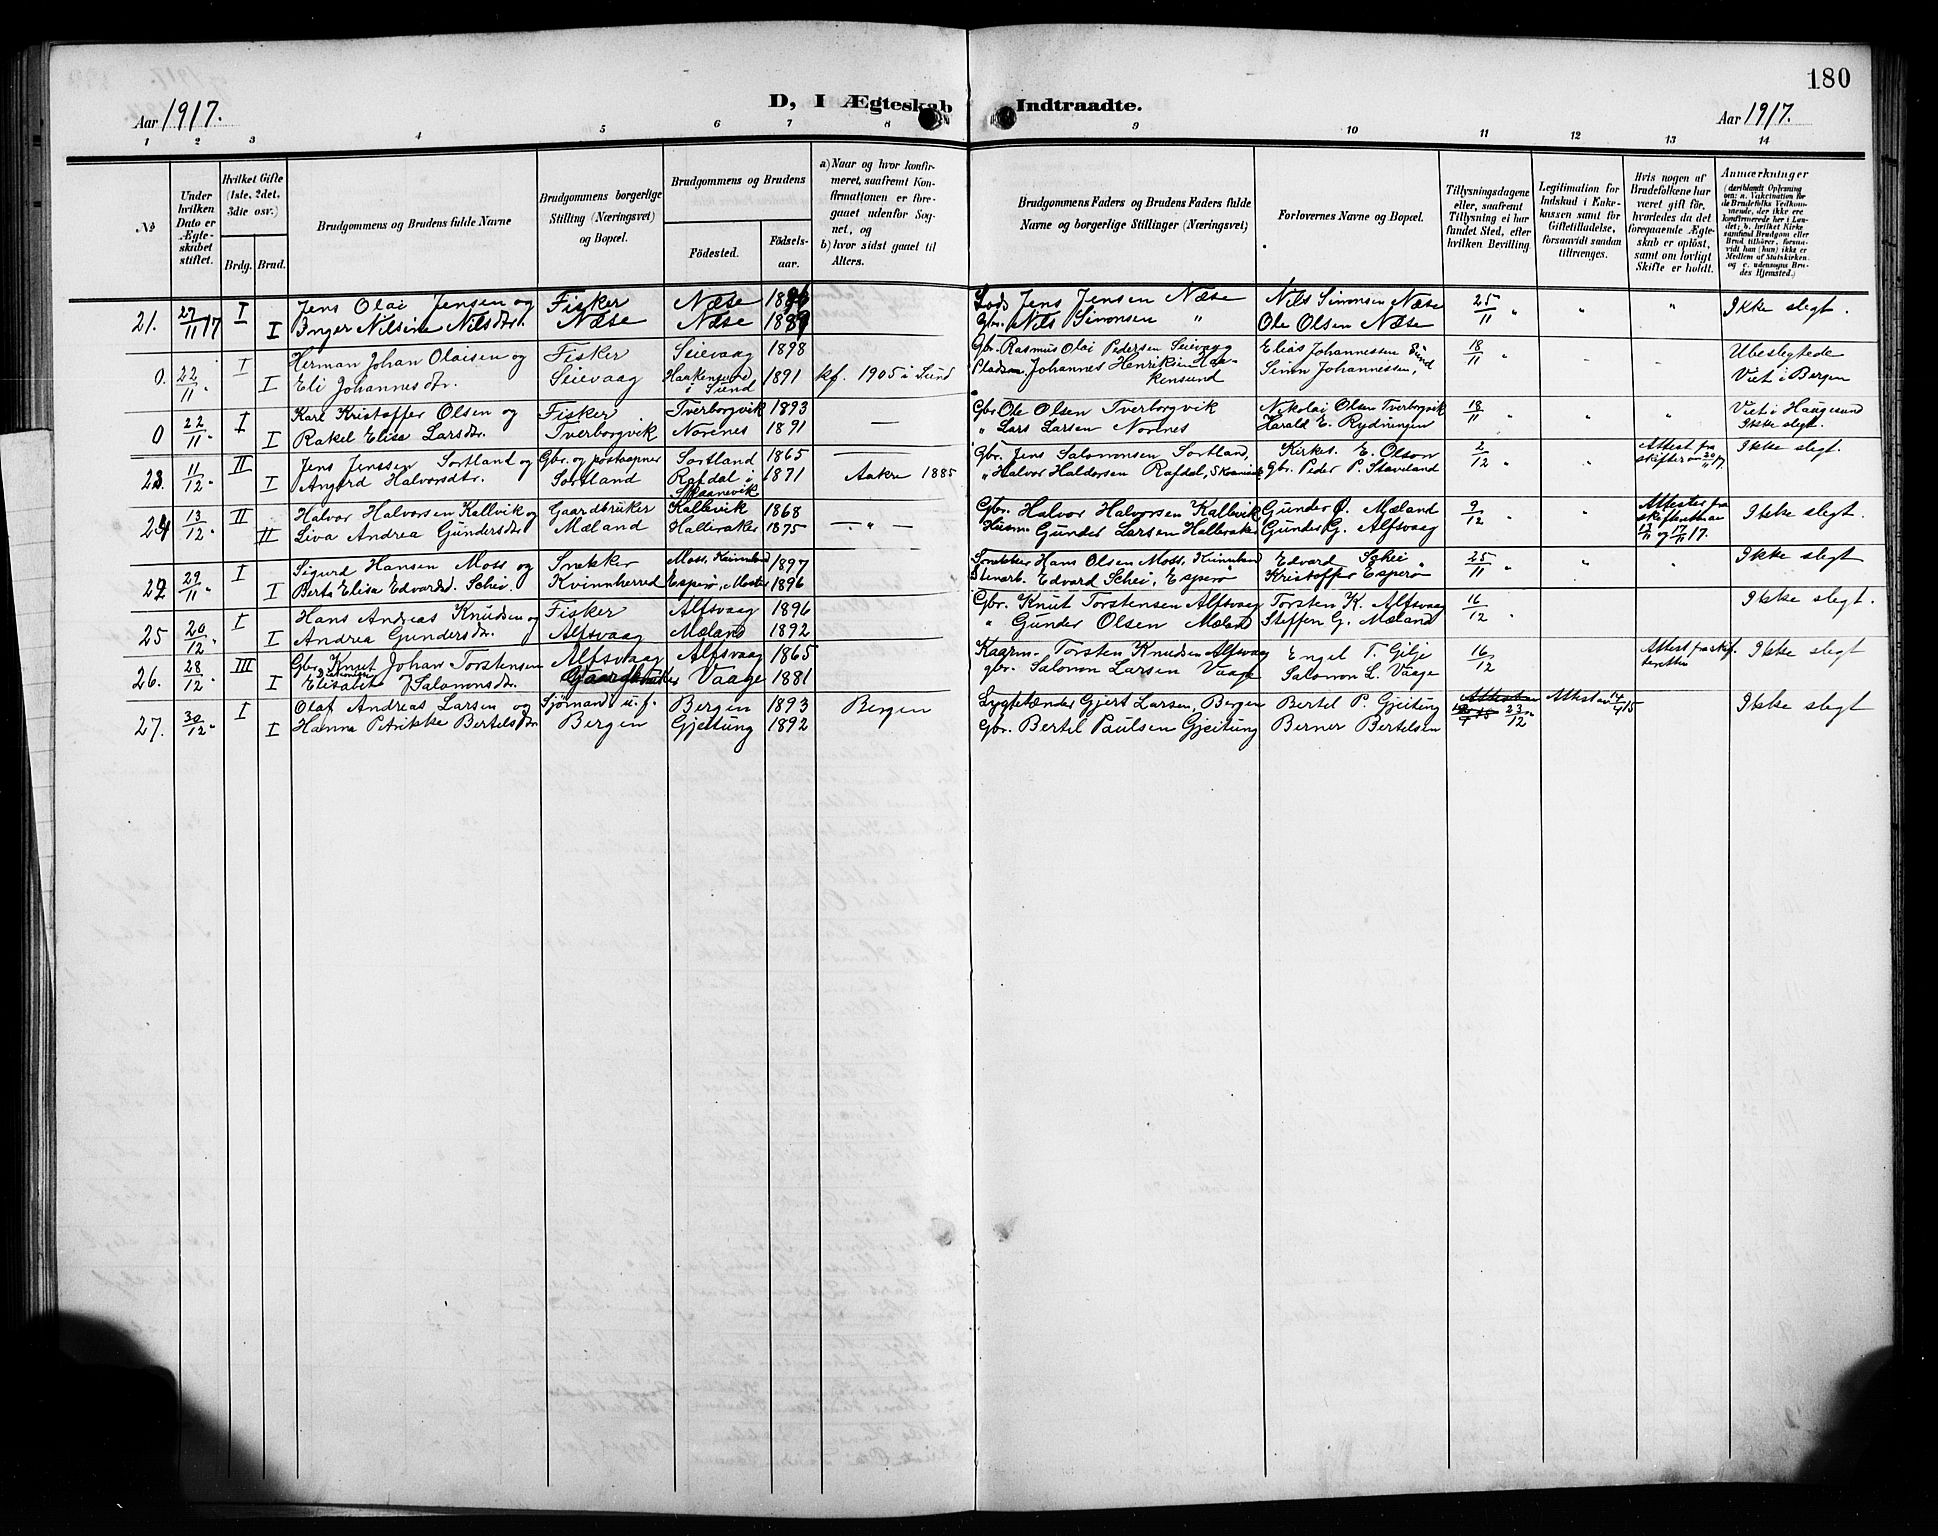 180
Aar 1917.
D, I Ægteskab Indtraadte.
Aar 1917.
1 2 3 4 5 6 7 8 9 10 11 12 13 14
№
Under hvilken Dato er Ægteskabet stiftet.
Hvilket Gifte (1ste, 2det, 3die osv.)
Brdg. Brud.
Brudgommens og Brudens fulde Navne
Brudgommens borgerlige Stilling (Næringsvei) og Bopæl.
Brudgommens og Brudens
Fødested.
Fødselsaar.
a) Naar og hvor konfirmeret, saafremt Konfirmationen er foregaaet udenfor Sognet, og
b) hvor sidst gaaet til Alters.
Brudgommens Faders og Brudens Faders fulde Navne og borgerlige Stillinger (Næringsvei)
Forlovernes Navne og Bopæl.
Tillysningsdagene eller, saafremt Tillysning ei har fundet Sted, efter hvilken Bevilling
Legitimation for Indskud i Enkekassen samt for Giftetilladelse, forsaavidt saadan tiltrænges.
Hvis nogen af Brudefolkene har været gift før, hvorledes da det foregaaende Ægteskab er opløst, samt om lovligt Skifte er holdt.
Anmærkninger
21. 27/11 17 I Jens Olai Jensen og Fisker Næse Lods Jens Jensen Næse Nils Simonsen Næse 25/11 " " " Ikke slegt.
I Inger Nilsine Nilsdtr. Næse Næse 1889 Gbr. Nils Simonsen " Ole Olsen Næse
0. 22/11 " I Herman Johan Olaisen og Fisker Seievaag 1898 Gbr. Rasmus Olai Pedersen Seievaag Elias Johannessen Sund 18/11 " Ubeslegtede
I Eli Johannesdtr. Seievaag Haakensund i Sund 1891 kf. 1905 i Sund Pladsm. Johannes Henriksen Haakensund Simon Johannessen, " Viet i Bergen
0 22/11 " I Karl Kristoffer Olsen og Fisker Tverborgvik 1893 Gbr. Ole Olsen Tverborgvik Nikolai Olsen Tverborgvik 18/11 " " Viet i Haugesund
I Rakel Elisa Larsdtr. Tverborgvik Norenes 1891 — " Lars Larsen Norenes Harald E. Rydningen Ikke slegt.
23. 11/12 " II Jens Jenssen Sortland og Gbr. og postaapner Sortland 1865 Gbr. Jens Salomonsen Sortland, Kirkes. E. Olson 2/12 " " Attest fra skifter av 20/11 17 Ikke slegt.
I Angerd Halvorsdtr. Sortland Rafdal i Skaanevik 1871 Aakre 1885 " Halvor Haldorsen Rafdal, Skaanevik gbr. Peder P. Staveland
24 13/12 " II Halvor Halvorsen Kallvik og Gaardbruker Kallevik 1868 Gbr. Halvor Halvorsen Kallevik Gunder Ø. Mæland 9/12 " Attester fra skifteretten av Ikke slegt.
II Siva Andrea Gundersdtr. Mæland Halleraker 1875 — " — Husm. Gunder Larsen Halleraker Gunder G. Alfsvaag og 17/11 17.
22 29/11 " I Sigurd Hansen Moss og Snekker Moss, 1897 Snekker Hans Olsen Moss, Edvard Schei 25/11 " " " Ikke slegt
I Berta Elisa Edvardsd. Schei. Kvinnherred Esperø, Moster 1896 Stenarb. Edvard Schei, Esperø Kristoffer Esperø
25 20/12 " I Hans Andreas Knudsen og Fisker Alfsvaag 1896 Gbr. Knut Torstensen Alfsvaag Torsten K. Alfsvaag 16/12 " Ikke slegt.
I Andrea Gundersdtr. Alfsvaag Mæland 1892 " Gunder Olsen Mæland Steffen G. Mæland
26. 28/12 " III Gbr. Knut Johan Torstensen Alfsvaag Alfsvaag 1865 Kaarm. Torsten Knudsen Alfsvaag Engel T. Gilje 16/12 Attest fra skifteretten Ikke slegt
I Elisabet Salomonsdtr. Gaardbruker Vaage 1881 gbr. Salomon Larsen Vaage Salomon L. Vaage
27. 30/12 " I Olaf Andreas Larsen og Sjømand u.f. Bergen 1893 Bergen Lygtetænder Gjert Larsen, Bergen Bertel P. Gjeitung 23/12 " Attest av 14/4 15 Ikke slegt
I Hanna Petrikke Bertelsdtr Bergen Gjeitung 1892 Gbr. Bertel Paulsen Gjeitung Berner Bertelsen